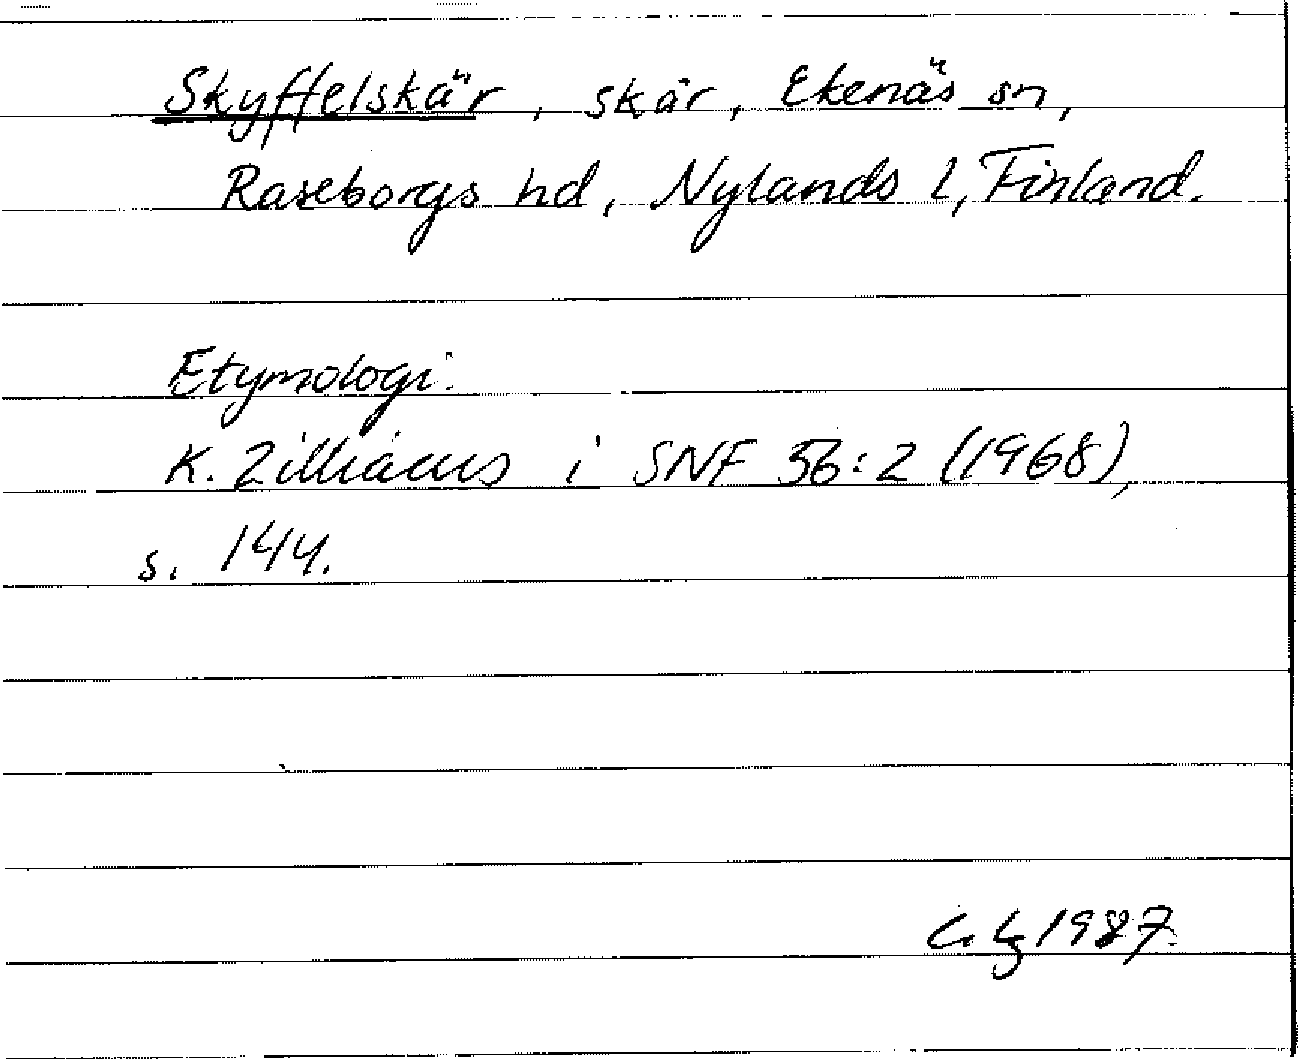 Skyffelskär, skär, Ekenäs sn,
Raseborgs hd, Nylands l, Finland.
Etymologi:
K. Zilliacus i SNF 56:2 (1968),
s. 144.
1987